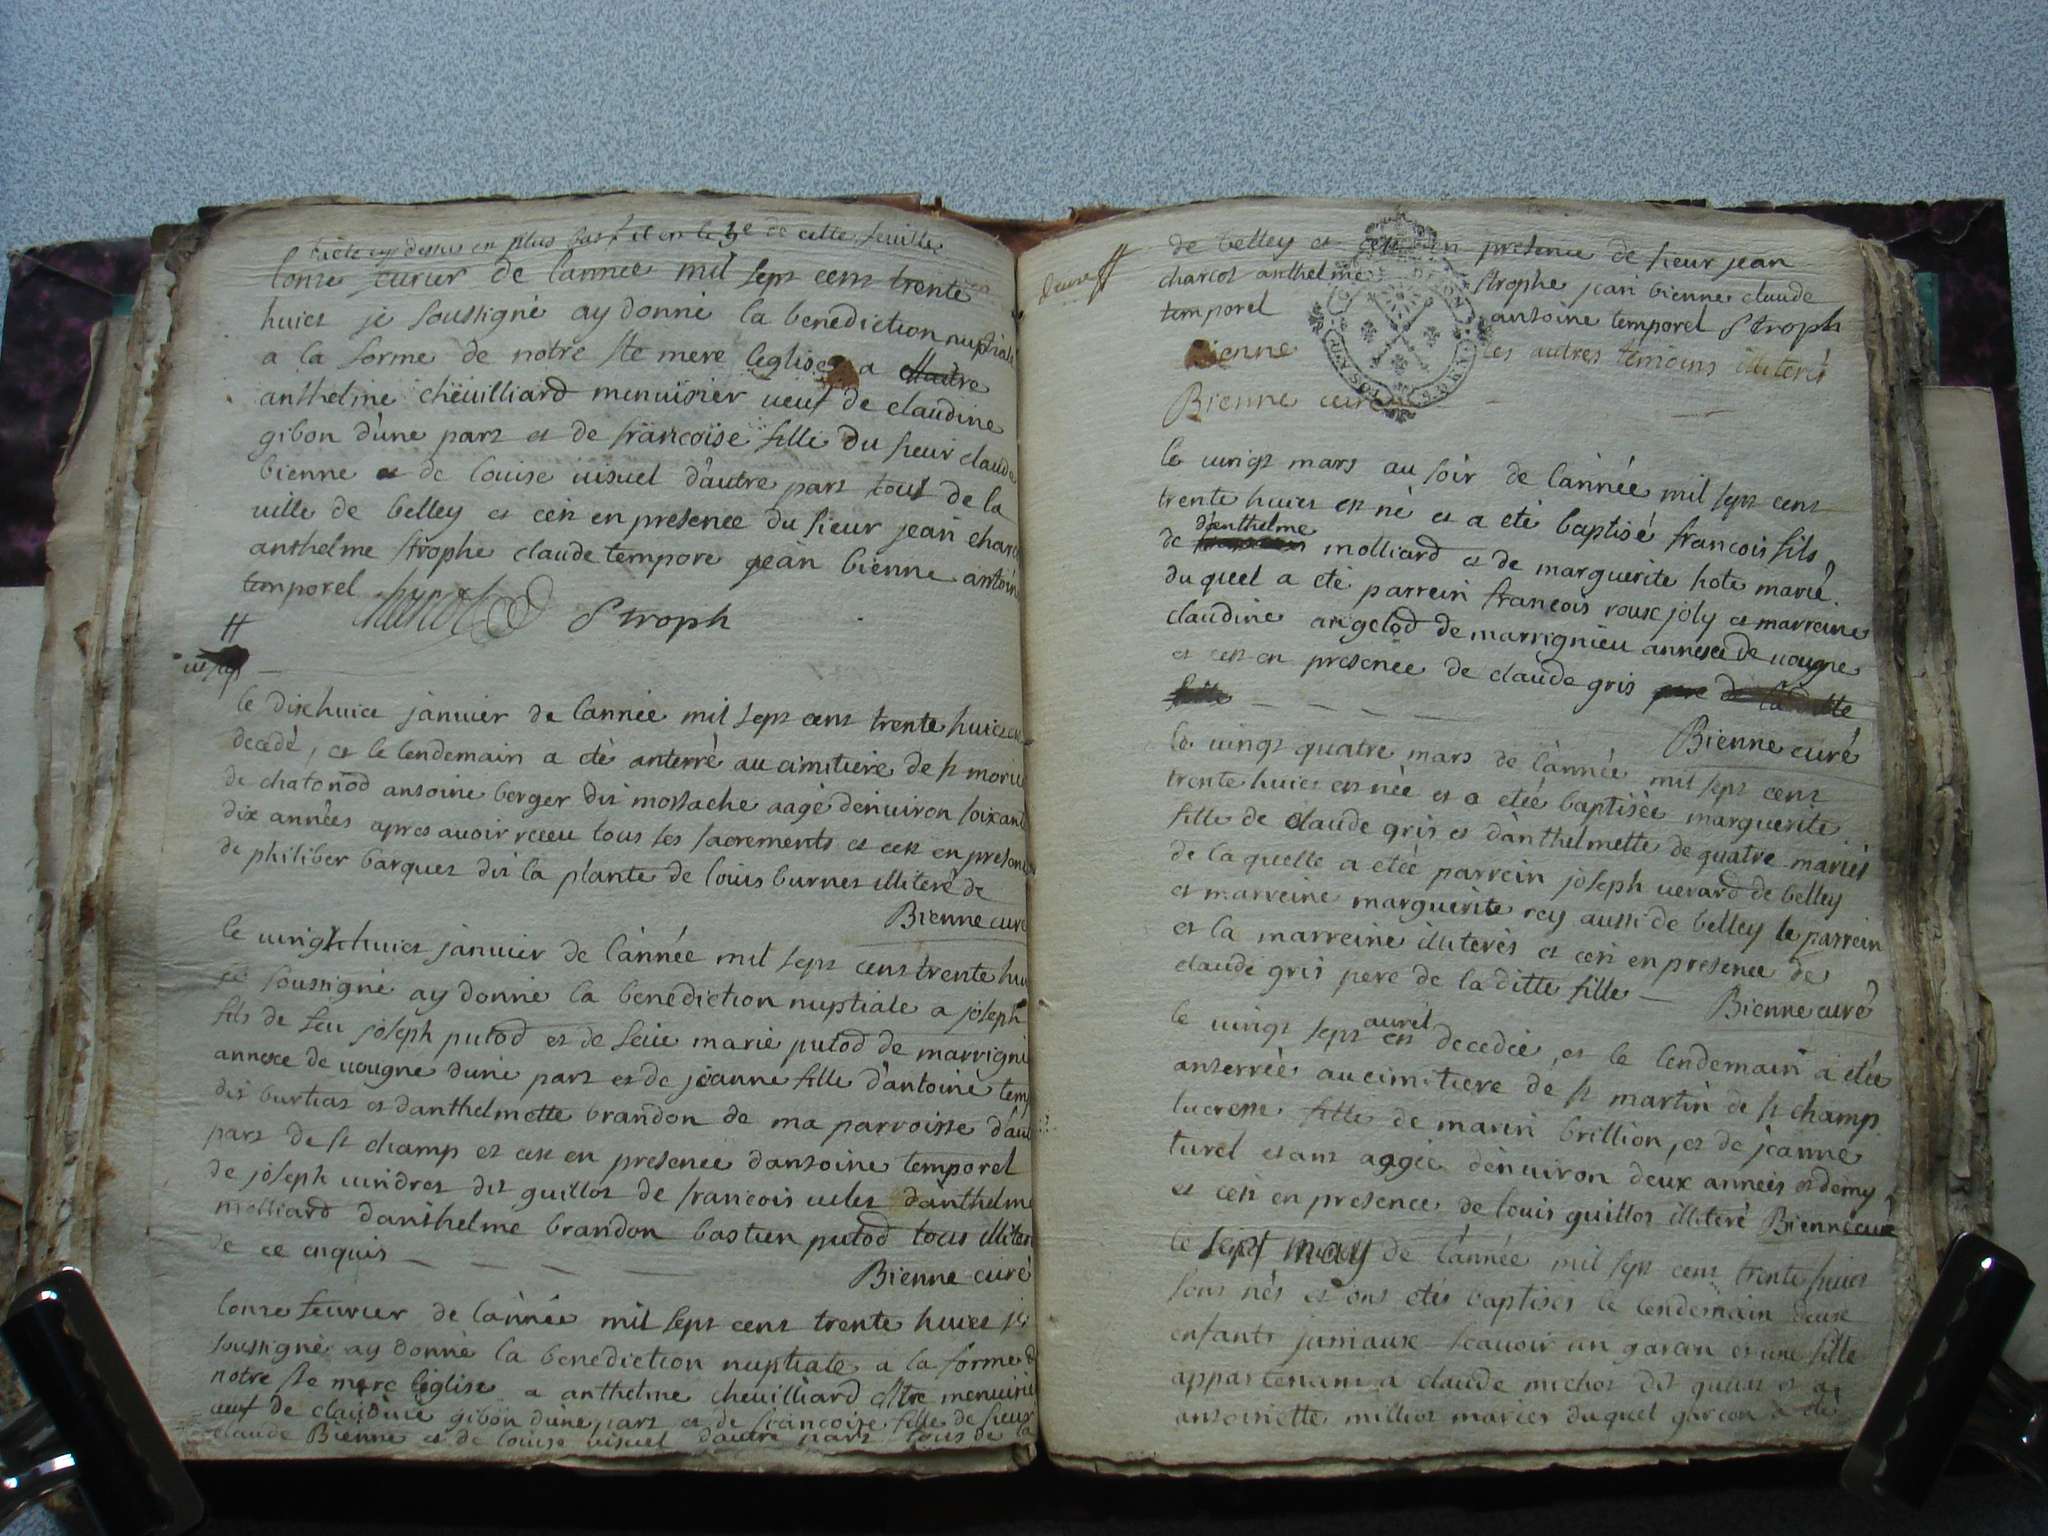 l'acte cy dessus en plus bas
lonze feurier de lannee mil sept cent trente
huict je soussigné ay donné la benediction nuptiale
a la forme de notre ste mere leglise a
anthelme cheuilliard menuisier ueuf de claudine
gibon d'une part et de francoise fille du sieur claude
bienne et de louise uisuel d'autre part tous de la
uille de belley et cest en presence du sieur jean charcot
anthelme strophe claude tempore jean bienne antoine
temporel Charcot Stroph
le dixhuict januier de lannée mil sept cent trente huict est
decedé, et le lendemain a eté anterré au cimitiere de st morice
de chatonod antoine berger dit mostache aagé denuiron soixante
dix années apres auoir receu tous les sacrements et cest en presence
de philiber barquet dit la plante de louis burnet illiteré de
Bienne curé
le uingt huict januier de l'année mil sept cent trente huict
je soussigné ay donné la benediction nuptiale a joseph
fils de feu joseph putod et de feüe marie putod de marrigni
annexe de uougne d'une part et de jeanne fille d'antoine temp
dit burtiat et danthelmette brandon de ma parroisse d'au
part de st champ et cest en presence dantoine temporel
de joseph uindret dit guillot de francois d'anthelme
molliard danthelme brandon bastien putod tous illiter
de ce enquis
Bienne curé
lonze feurier de l'année mil sept cent trente huict je
soussigné ay donné la benediction nuptiale a la forme de
notre ste mere leglise a anthelme cheuilliard menuisier
ueuf de claudine gibon d'une part et de francoise fille de sieur
claude Bienne et de louise uisuel d'autre part tous de la
de belley et cest en presence de sieur jean
charcot anthelme strophe jean bienne claude
temporel antoine temporel Stroph
Bienne les autres temoins illiterés
Bienne curé
le uingt mars au soir de l'année mil sept cent
trente huict est né et a eté baptisé francois fils
d'anthelme
de molliard et de marguerite hote marié
du quel a eté parrein francois roux joly et marreine
claudine angelod de marrignieu annexe de uougne
et cest en presence de claude gris pere de la ditte
fille
Bienne curé
le uingt quatre mars de l'année mil sept cent
trente huict est née et a etée baptisée marguerite
fille de claude gris et d'anthelmette de quatre mariés
de la quelle a etée parrein joseph uerard de belley
et marreine marguerite rey aussi de belley le parrein
et la marreine illiterés et cest en presence de
claude gris pere de la ditte fille Bienne curé
auril
le uingt sept est decedée, et le lendemain a etée
anterrée au cimitiere de st martin de st champ
lucresse fille de marin brillion, et de jeanne
turel etant aagée denuiron deux années et demy
et cest en presence de louis guillot illiteré Bienne curé
le sept may de l'année mil sept cent trente huict
sont nés et ont etés baptises le lendemain deux
enfants jumaux scauoir un garcon et une fille
appartenant a claude michot dit et a
antoinette milliot mariés duquel garcon a eté